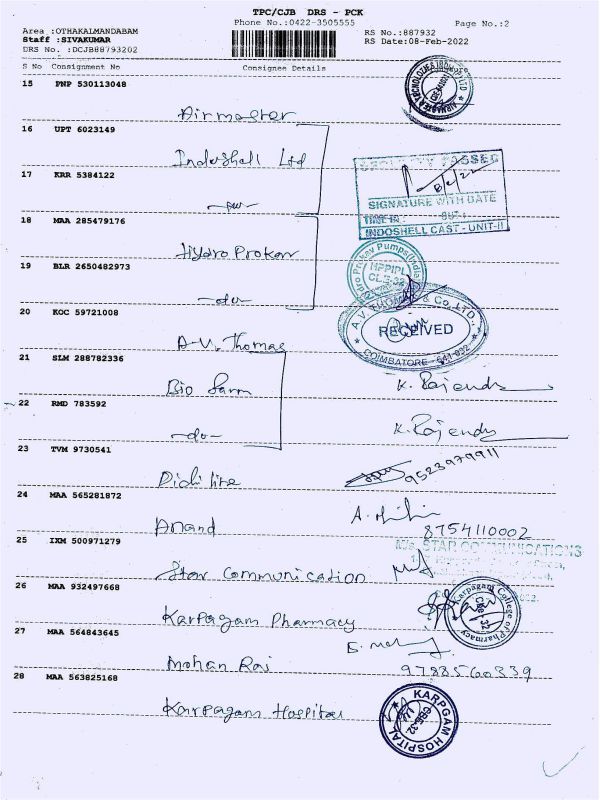 TPC/CJB DRS - PCK
Phone No.:0422-3505555
Page No.:2
Area :OTHAKALMANDABAM
Staff :SIVAKUMAR
DRS No. :DCJB88793202
RS No.:887932
RS Date:08-Feb-2022
S No Consignment No Consignee Details
15 PNP 530113048
Airmaster
16 UPT 6023149
Indoshell Ltd
SECURITY PASSED
17 KRR 5384122
SIGNATURE WITH DATE
TIME IN : OUT :
INDOSHELL CAST - UNIT-II
18 MAA 285479176
Hydro Prokav
Hydro Prokav Pumps (India)
HPPIPL
CBE-32
19 BLR 2650482973
-do-
20 KOC 59721008
A.V. Thomas
A.V. THOMAS & Co. LTD.,
RECEIVED
COIMBATORE - 641 032
21 SLM 288782336
Bio Farm
K. Rajendr
22 RMD 783592
-do-
K. Rajendr
23 TVM 9730541
Pidilite
9523979911
24 MAA 565281872
Anand
8754110002
25 IXM 500971279
M/s. STAR COMMUNICATIONS
Star Communication
26 MAA 932497668
Karpagam Pharmacy
Karpagam College of Pharmacy
CBE-32
27 MAA 564843645
Mohan Raj
9788560339
28 MAA 563825168
Karpagam Hospital
KARPGAM HOSPITAL
CBE-32